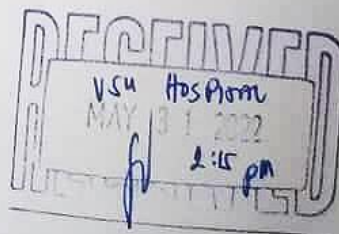 RECEIVED
VSU HOSPITAL
MAY 31 2022
2:15 pm